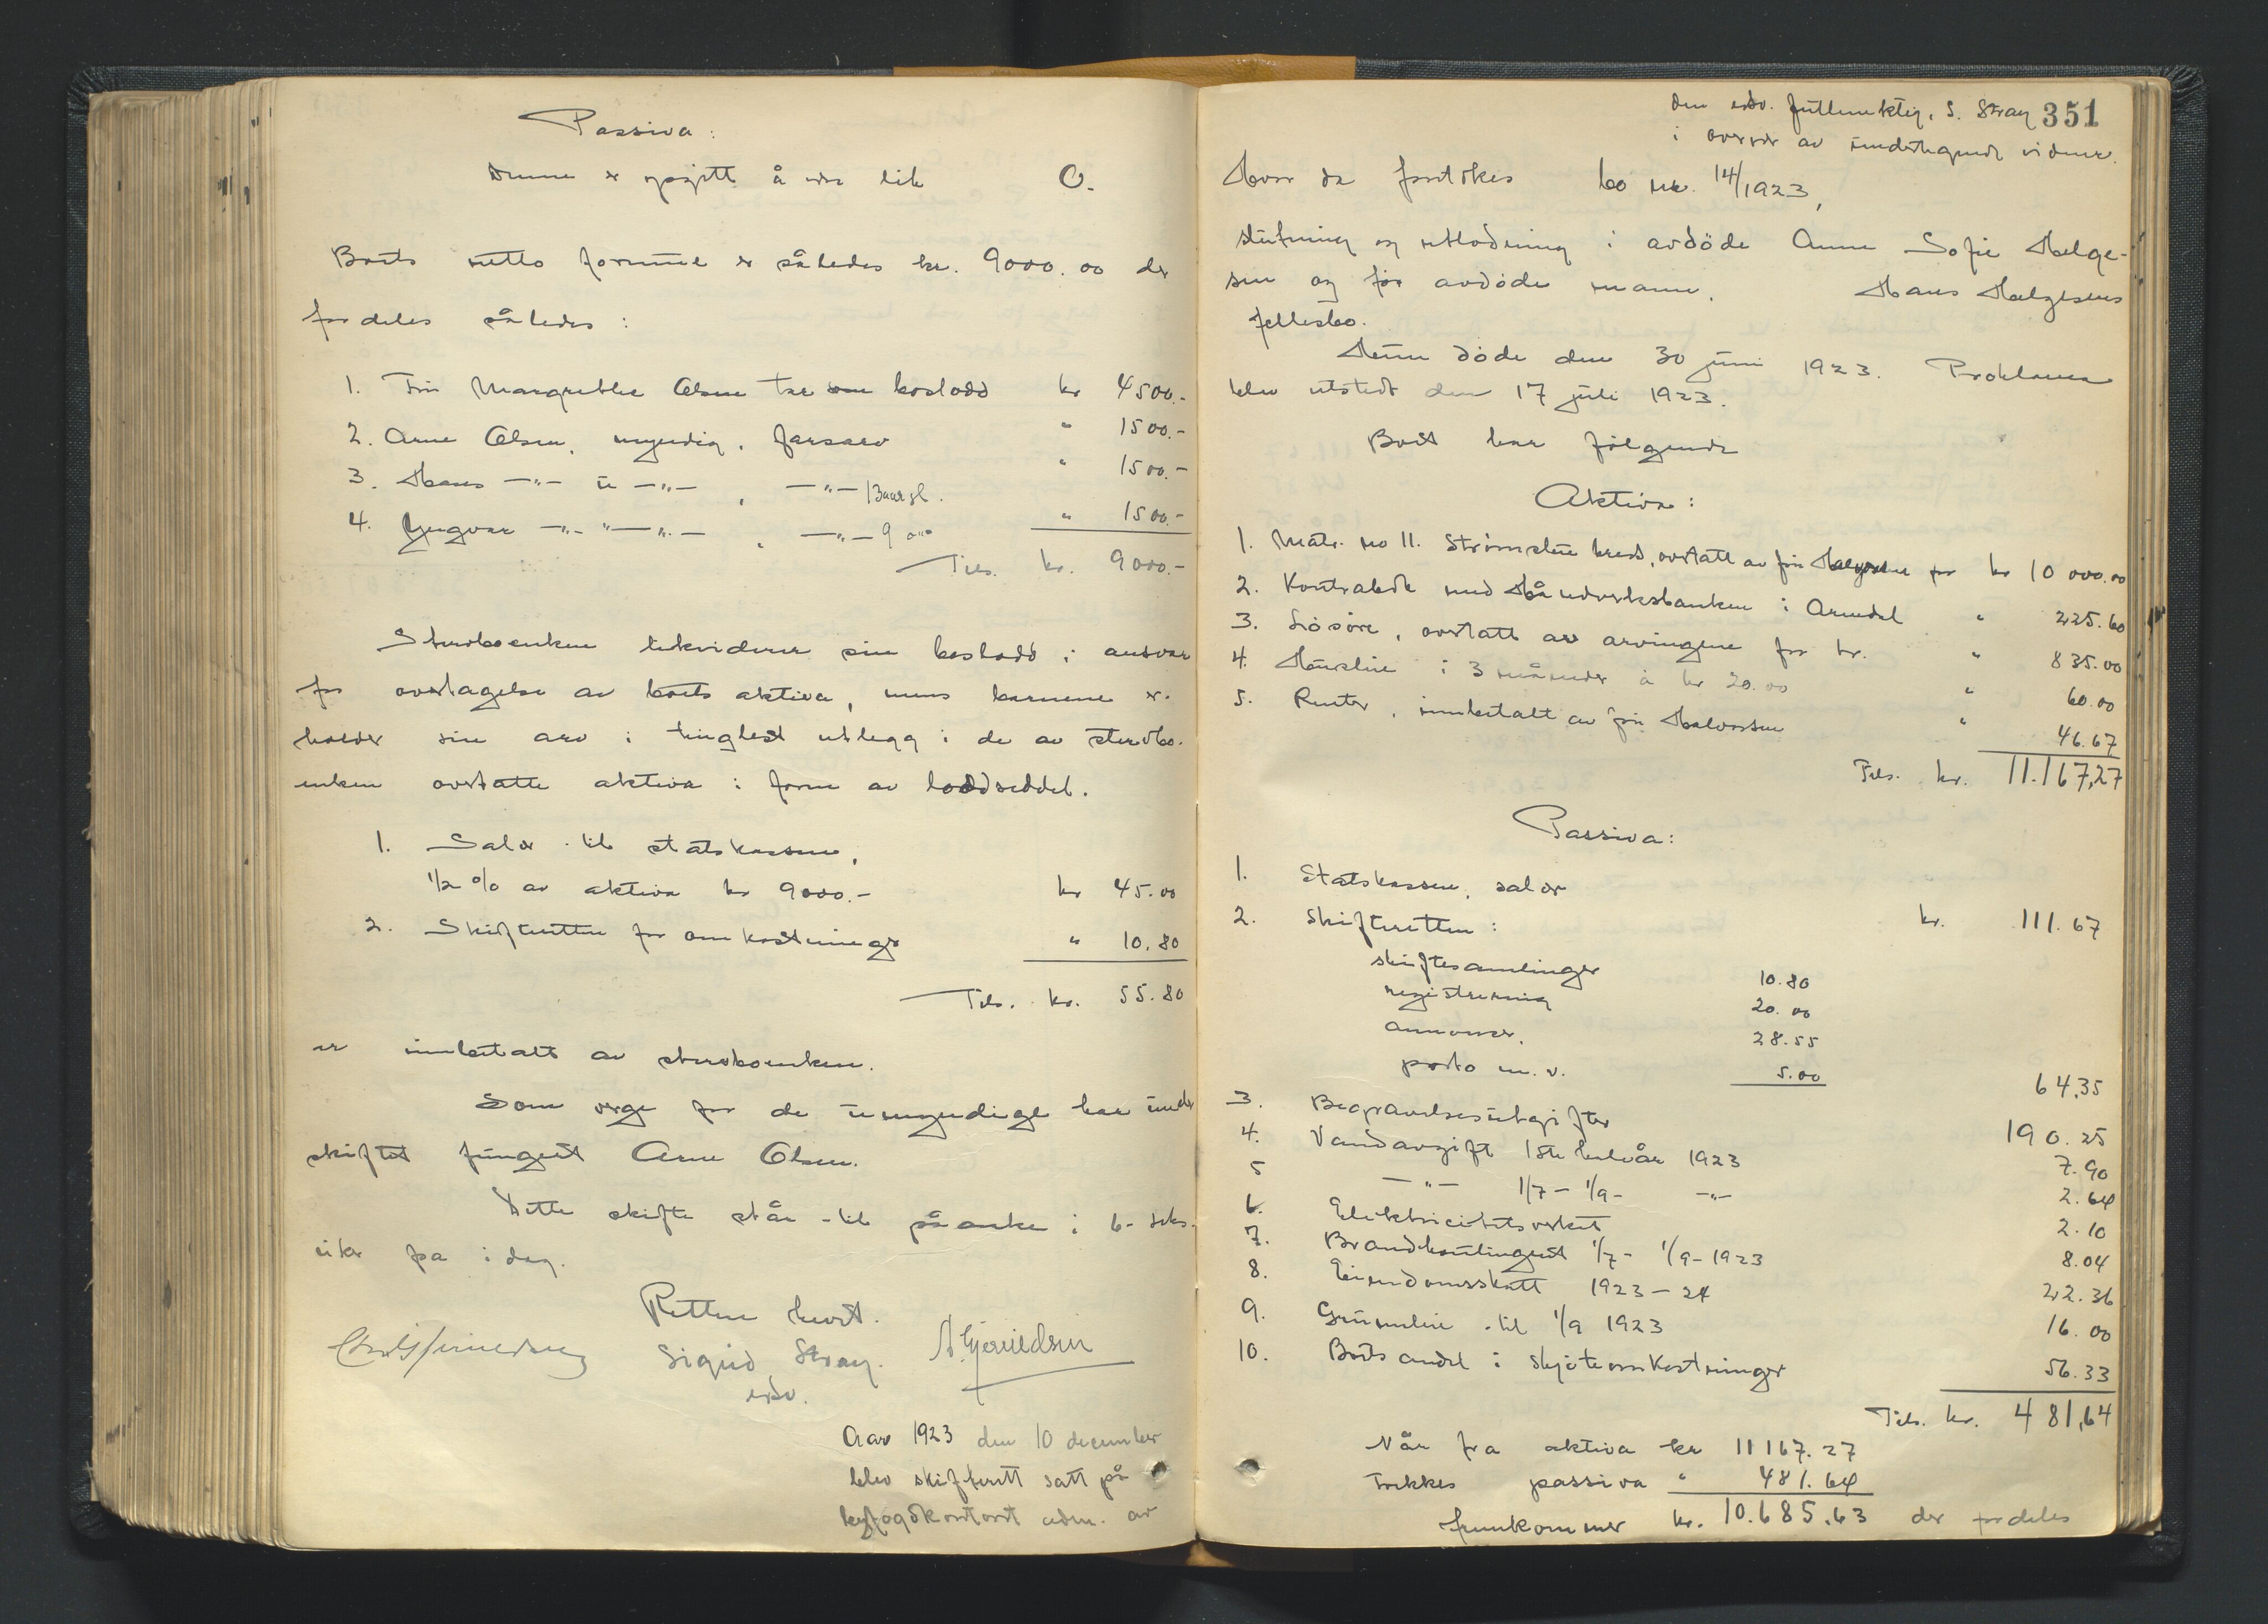 Passiva:
Denne er opgitt å være lik 0.
Boets netto formue er således kr. 9000.00 der
fordeles således:
1. Fru Margrethe Olsen tar som boslodd kr 4500.-
2. Arne Olsen, myndig, farsarv " 1500.-
3. Hans -"- u -"- , -"- " 1500.-
4. Yngvar -"- "-"- , -"- " 1500.-
Tils. kr. 9000.-
Stervboenken likviderer sin boslodd i ansvar
for overtagelse av boets aktiva, mens barnene er-
holder sin arv i tinglest utlegg i de av stervbo-
enken overtatte aktiva i form av loddseddel.
1. Salær til statskassen,
1/2 % av aktiva kr 9000.- kr 45.00
2. Skifteretten for omkostninger " 10.80
Tils. kr. 55.80
er innbetalt av stervboenken.
Som verge for de umyndige har under
skiftet fungert Arne Olsen.
Dette skifte står til påanke i 6- seks-
uker fra idag.
Retten hevet.
Sigrid Stray.
edsv.
Aar 1923 den 10 december
blev skifterett satt på
byfogdkontoret adm. av
351
den edsv. fullmektig, S. Stray
i overvær av undertegnede vidner.
Hvor da foretokes bo nr. 14/1923,
slutning og utlodning i avdöde Anne Sofie Helge-
sen og för avdöde mann, Hans Helgesens
fellesbo.
Hun döde den 30 juni 1923. Proklama
blev utstedt den 17 juli 1923.
Boet har fölgende
Aktiva:
1. Matr. no 11. Strömsbu kreds, overtatt av fru for kr 10 000.00
2. Kontrabok med Håndverksbanken i Arendal " 225.60
3. Lösöre, overtatt av arvingene for kr. " 835.00
4. Husleie i 3 måneder à kr 20.00 " 60.00
5. Renter, innbetalt av fru Halvorsen " 46.67
Tils. kr. 11.167,27
Passiva:
1. Statskassen, salær kr. 111.67
2. Skifteretten:
skiftesamlinger 10.80
registrering 20.00
annonser. 28.55
porto m. v. 5.00 64,35
3. Begravelsesutgifter 190.25
4. Vandavgift 1ste halvår 1923 7.90
5 -"- 1/7 - 1/9 - -"- 2.64
6. Elektricitetsverket 2.10
7. Brandkontingent 1/7 - 1/9 - 1923 8.04
8. Eiendomsskatt 1923-24 22.36
9. Grunnleie til 1/9 1923 16.00
10. Boets andel i skjöteomkostninger 56.33
Tils. kr. 481,64
Når fra aktiva kr 11167.27
trekkes passiva " 481.64
fremkommer kr. 10.685,63 der fordeles